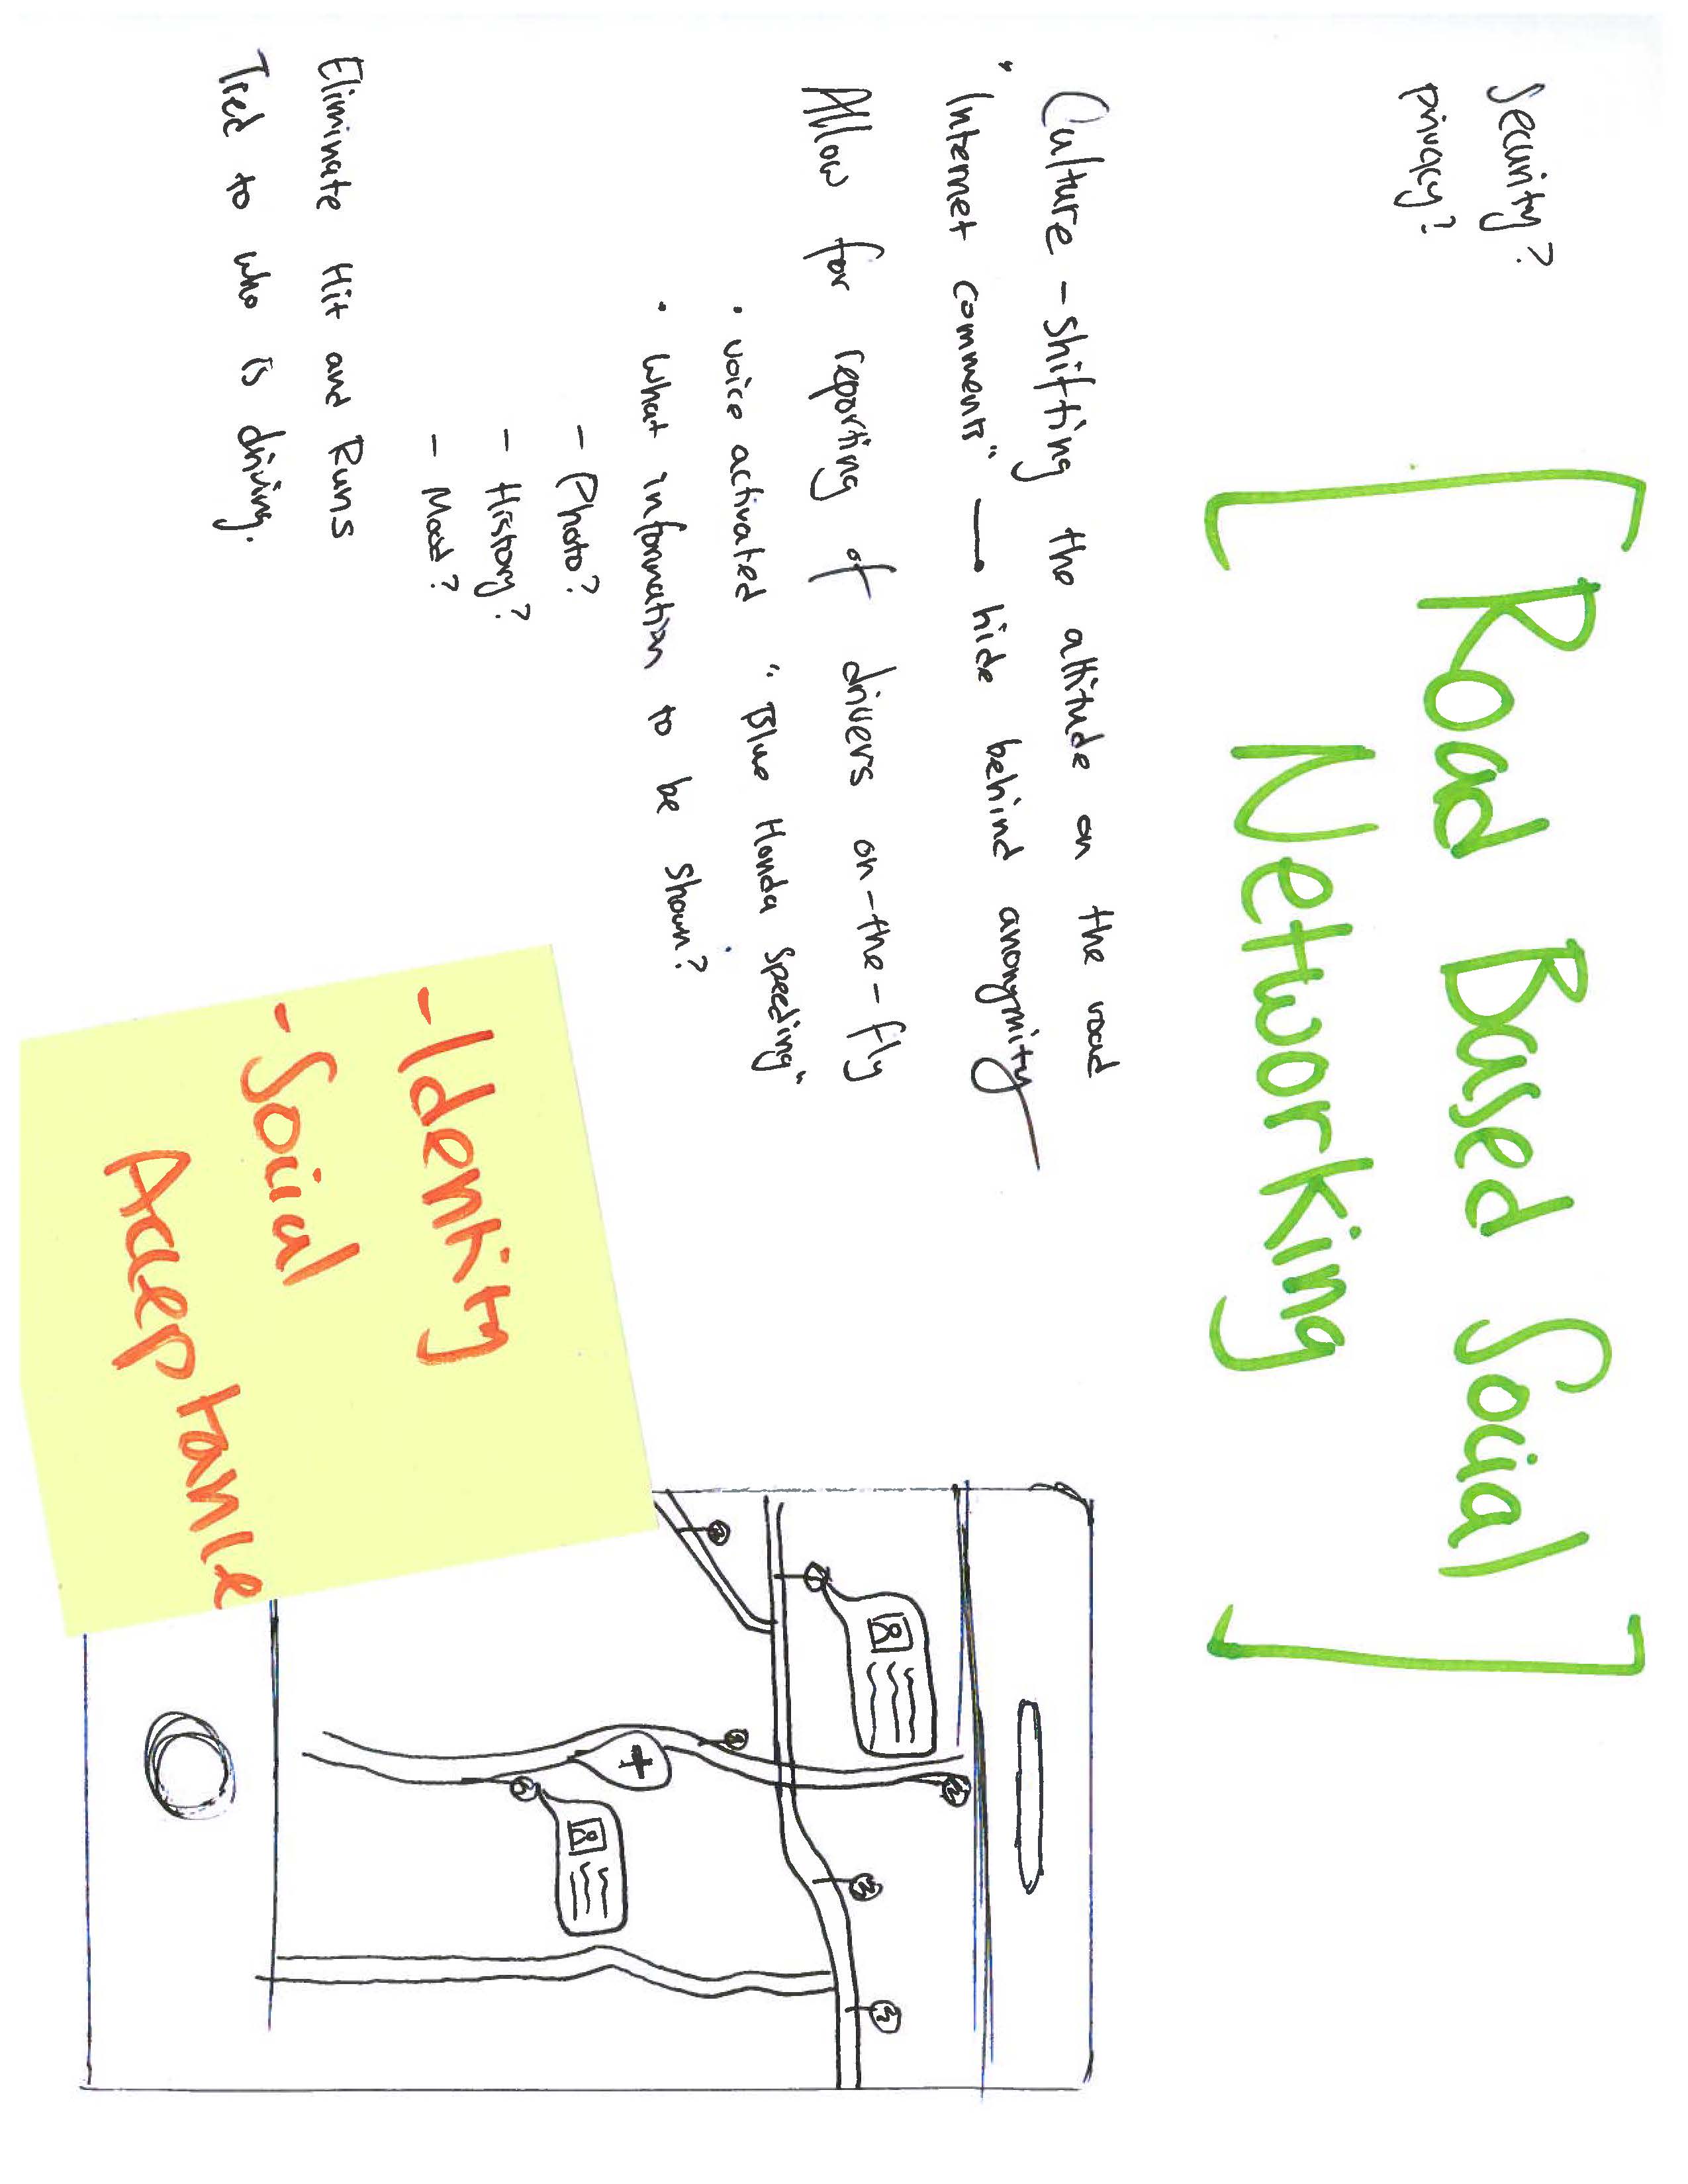 Security?
privacy?
[ Road Based Social
Networking ]
Culture - Shifting the attitude on the road
" Internet comments" — hide behind anonymity
Allow for reporting of drivers on-the-fly
• voice activated "Blue Honda Speeding"
• What information to be shown?
- Photo?
- History?
- Mood?
Eliminate Hit and Runs
Tied to who is driving.
- Identity
- Social
Acceptance